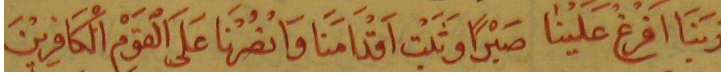 رَبَّنَا اَفْرِغْ عَلَيْنَا صَبْرًا وَثَبِّتْ اَقْدَامَنَا وَانْصُرْنَا عَلَى الْقَوْمِ الْكَافِرِيْنَ